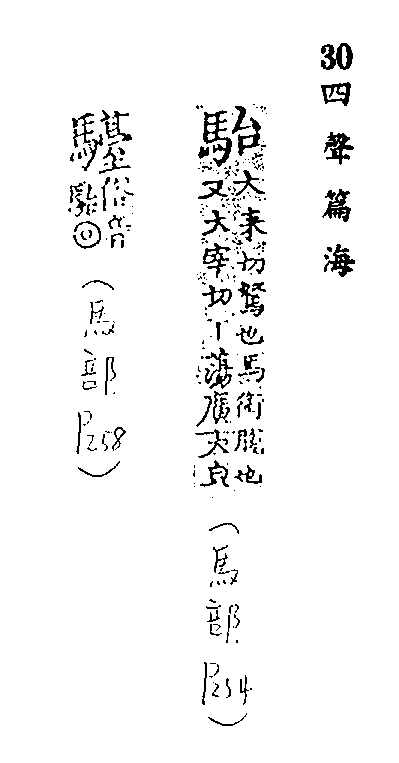 30 四聲篇海
駘
大来切駑也馬銜脫也
又大宰切丨蕩廣大皃
(馬部 P254)
俗音
駘◎
(馬部 P258)